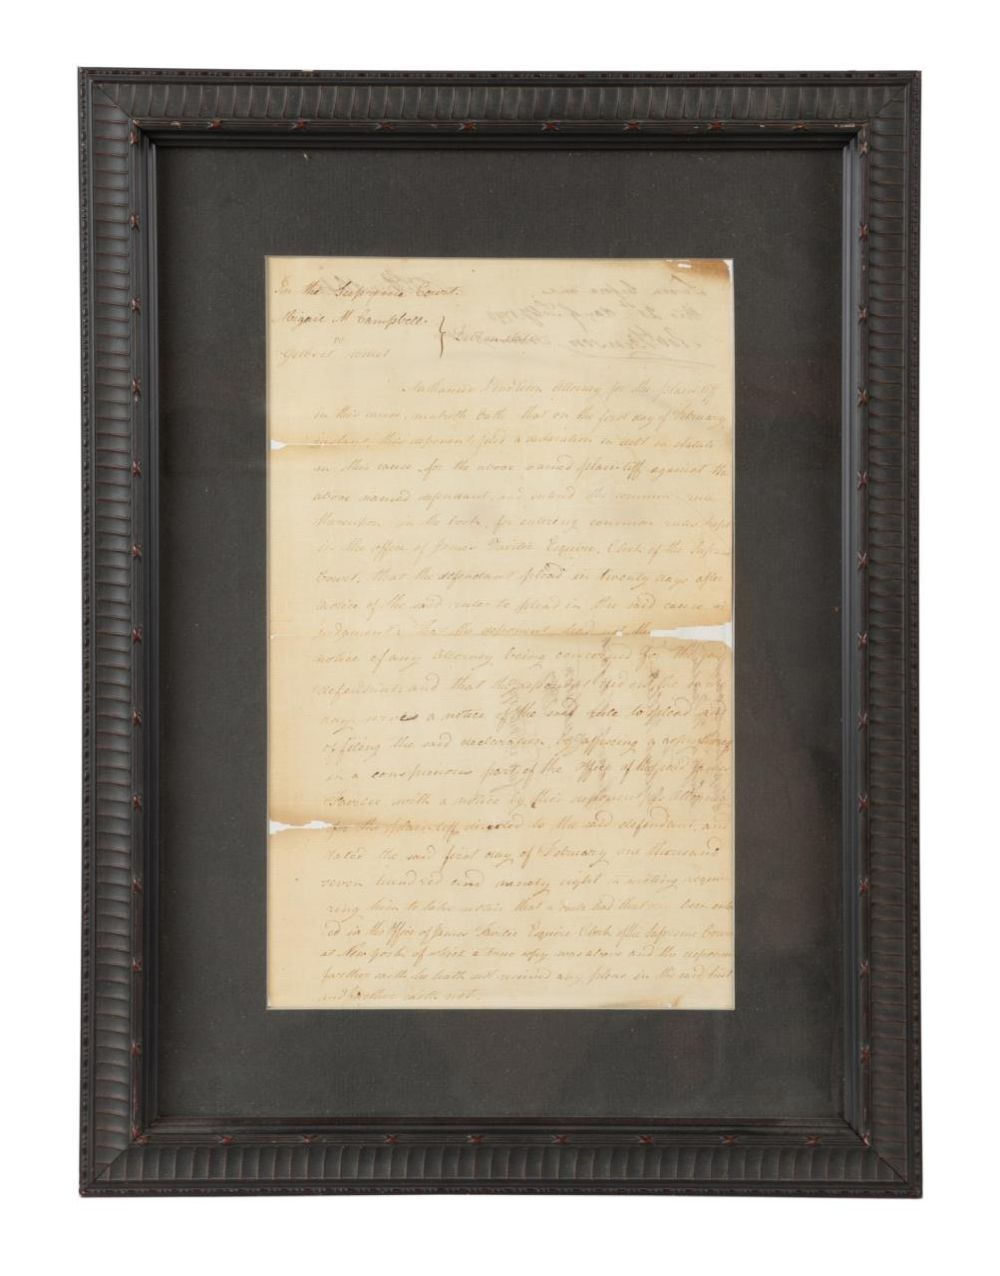 In the Supreme Court.
Abigail M Campbell
vs } Debt on
Gilbert
Nathaniel Pendleton Attorney for the plaintiff
in this cause, maketh Oath that on the first day of February
instant this deponent filed a declaration in debt
in this cause for the above named plaintiff against the
above named defendant, and entered the common rule
thereupon in the book, for entering common rules kept
in the office of James Fairlie Esquire, Clerk of the Supreme
Court, that the defendant plead in twenty days after
notice of the said rule to plead in the said cause or
judgment. That the deponent
notice of any Attorney being concerned for the said
defendant, and that the deponent did on the same
day serve a notice of the said rule to plead and
of filing the said declaration by affixing a copy thereof
in a conspicuous part of the Office of the said James
Fairlie, with a notice by this deponent as Attorney
for the plaintiff directed to the said defendant, and
dated the said first day of February one thousand
seven hundred and ninety eight in writing requi-
ring him to take notice that a rule had that day been enter-
ed in the Office of James Fairlie Esquire Clerk of the Supreme Court
at New York of which a true copy was above and the deponent
further saith he hath not received any plea in the said suit
and further saith not.